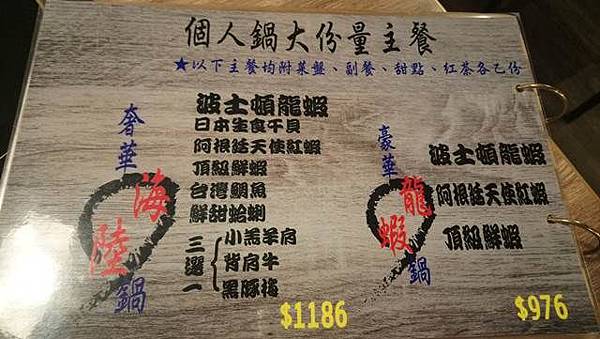 個人鍋大份量主餐
★以下主餐均附菜盤、副餐、甜點、紅茶各乙份
奢華
海陸
鍋
波士頓龍蝦
日本生食干貝
阿根廷天使紅蝦
頂級鮮蝦
台灣鯛魚
鮮甜蛤蜊
三選一
小羔羊肩
背肩牛
黑豚梅
$1186
豪華
龍蝦
鍋
波士頓龍蝦
阿根廷天使紅蝦
頂級鮮蝦
$976